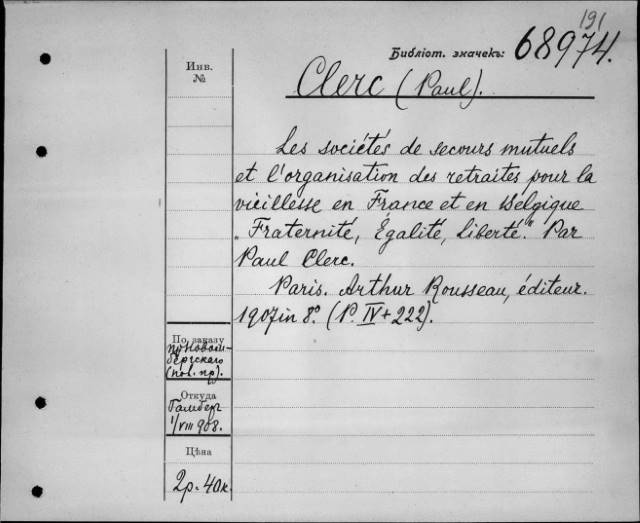 191
Библіот. значекъ: 68974.
Инв.
№
Clerc (Paul).
Les sociétés de secours mutuels
et l'organisation des retraites pour la
vieillesse en France et en Belgique
„Fraternité, Égalité, Liberté." Par
Paul Clerc.
Paris. Arthur Rousseau, éditeur.
1907 in 8º. (P. IV + 222).
По заказу
(пов. пр).
Откуда
Гамбер
1/VIII 908.
Цѣна
2р. 40к.